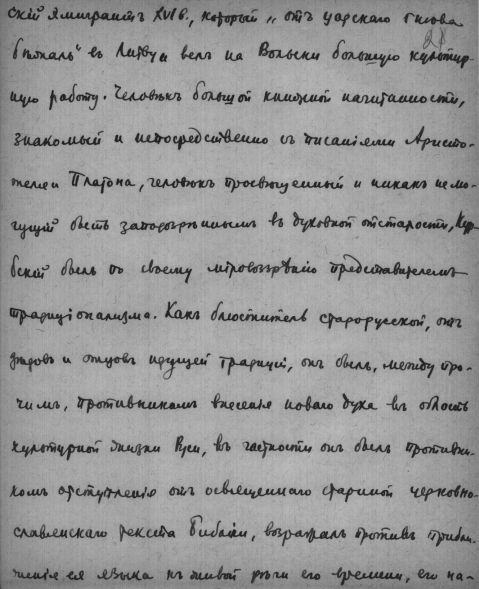 скій эмигрантъ XVI в., который „отъ царскаго гнѣва
28
бѣжалъ" въ Литву и велъ на Волыни большую культур-
ную работу. Человѣкъ большой книжной начитанности,
знакомый и непосредственно съ писаніями Аристо-
теля и Платона, человѣкъ просвѣщенный и никакъ не мо-
гущій быть заподозрѣннымъ въ духовной отсталости, Кур-
бскій былъ по своему міровоззрѣнію представителемъ
традиціонализма. Какъ блюститель старорусской, отъ
дѣдовъ и отцовъ идущей традиціи, онъ былъ, между про-
чимъ, противникомъ внесенія новаго духа въ область
культурной жизни Руси, въ частности онъ былъ противни-
комъ отступленія отъ освященнаго стариной церковно-
славянскаго текста Библіи, возражалъ противъ прибли-
женія ея языка къ живой рѣчи его времени, его на-